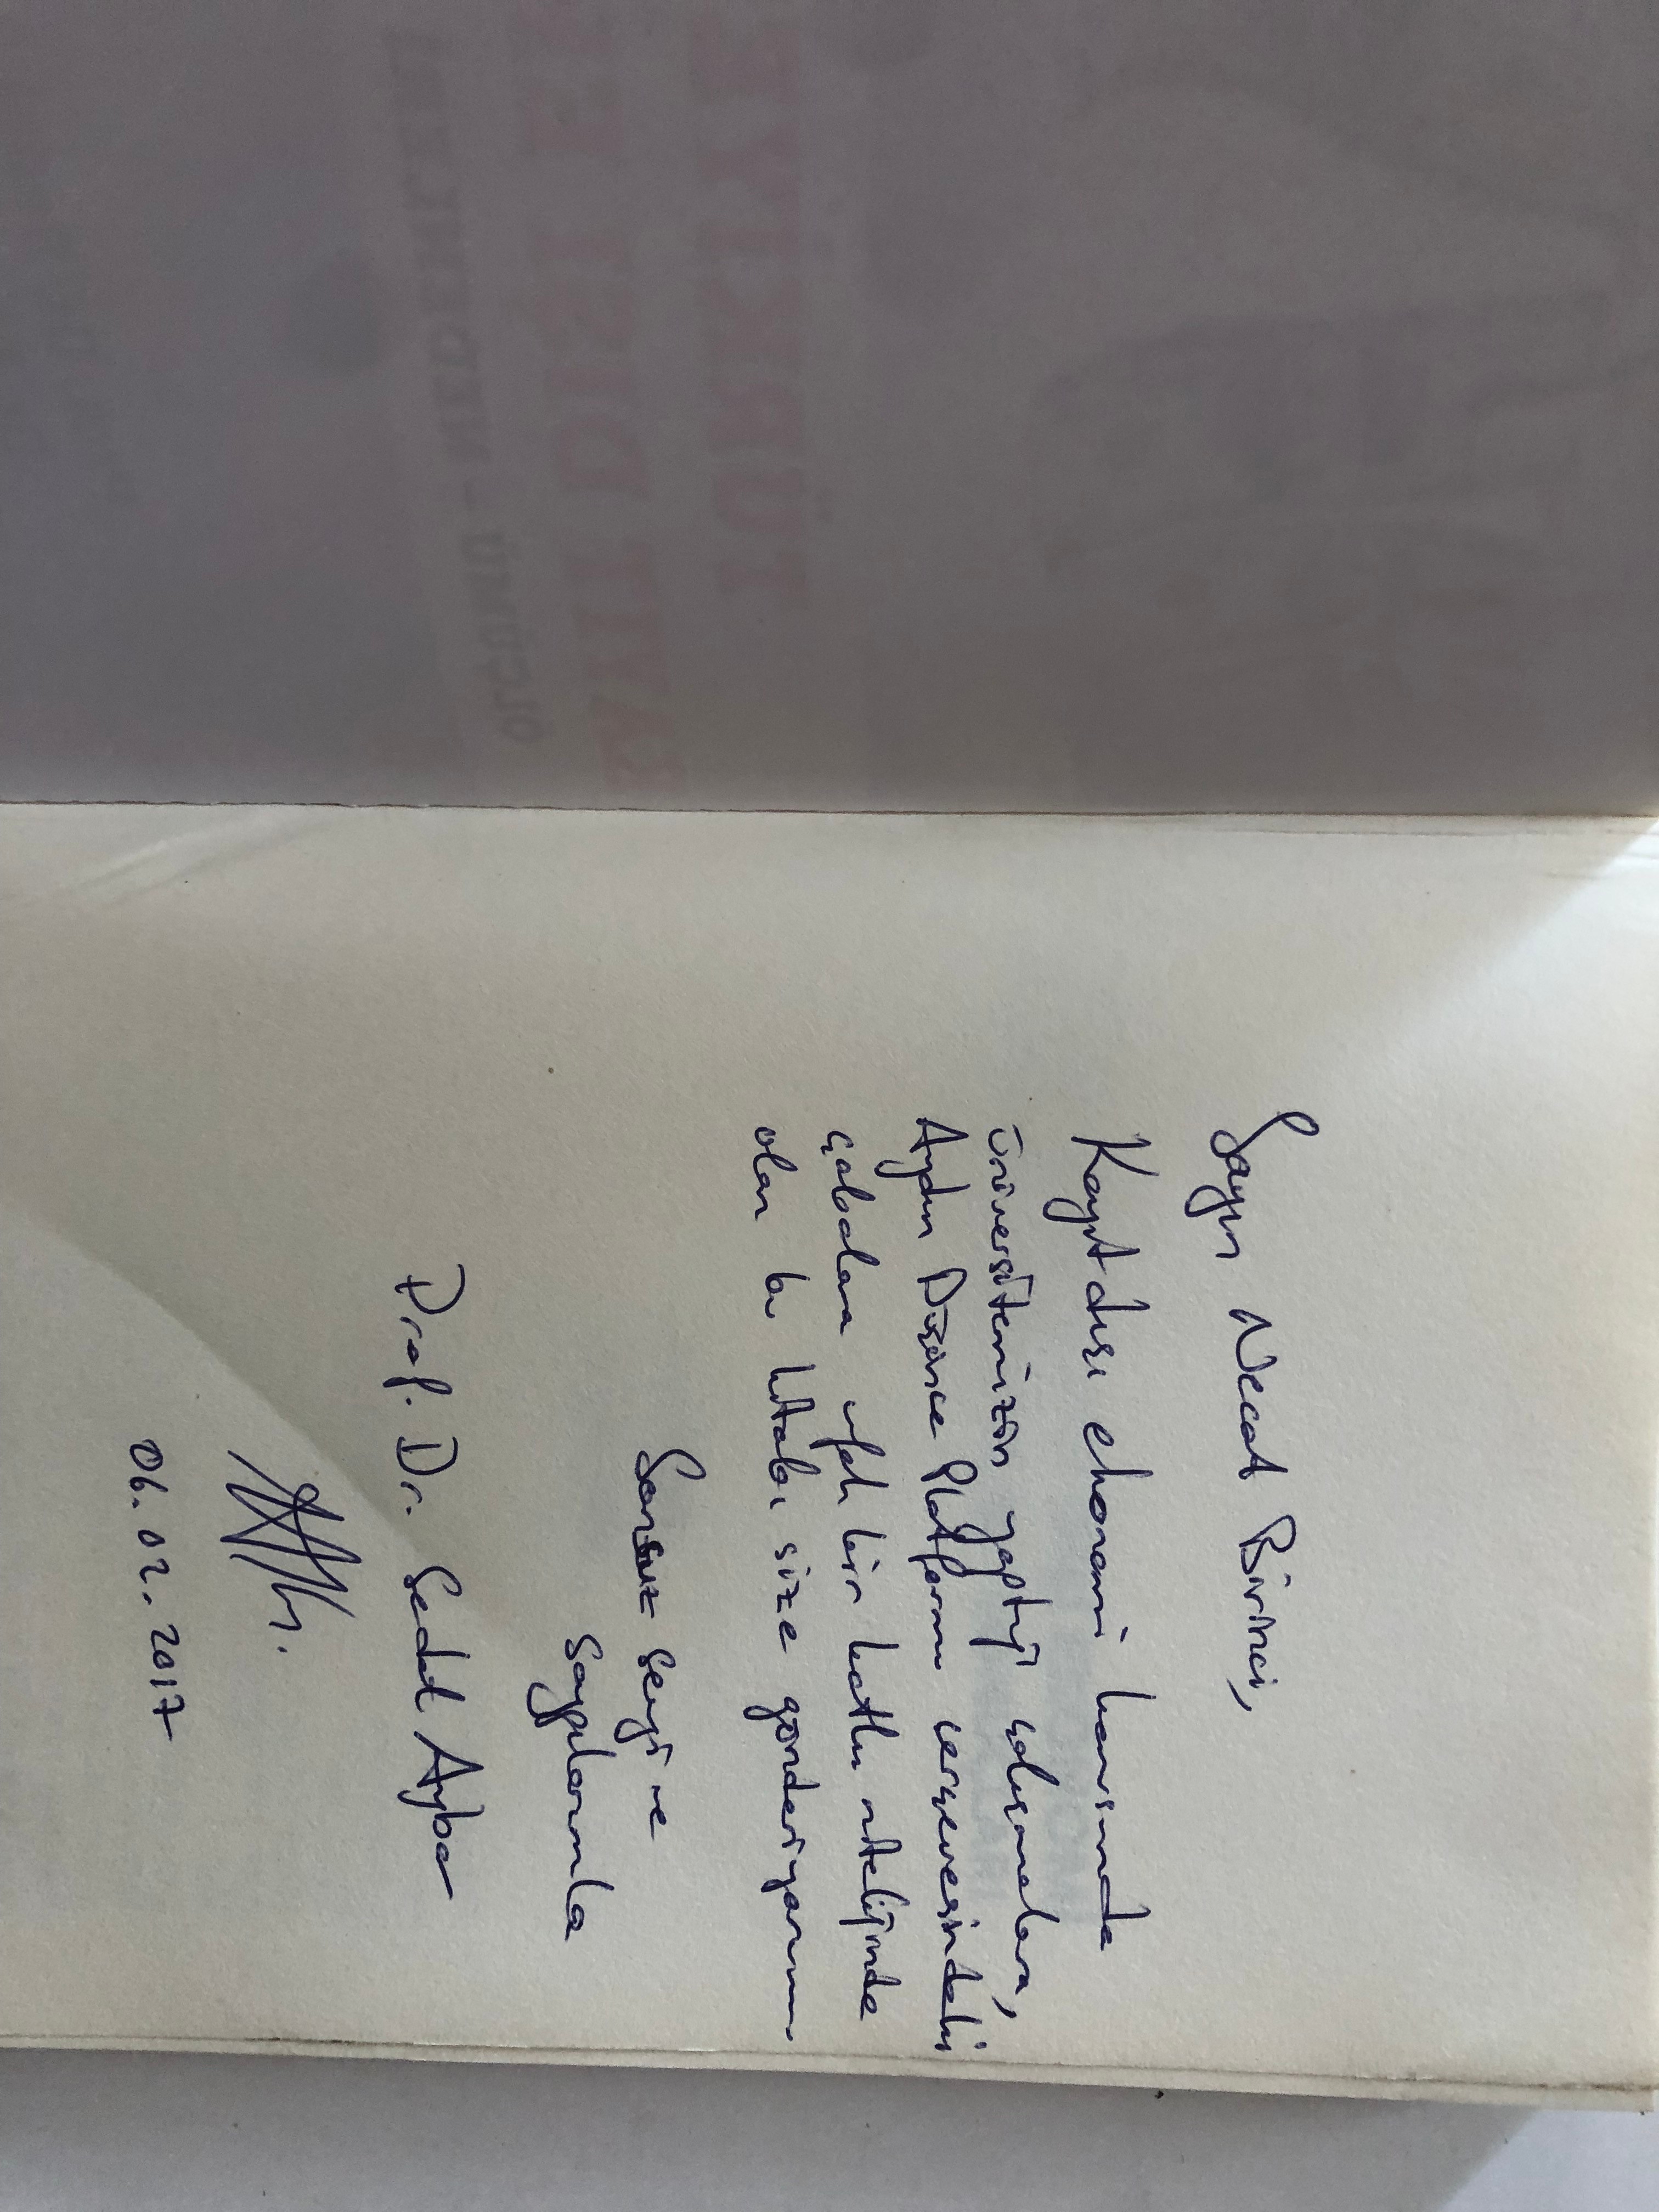 Sayın Necat Birinci,
Kayıtdışı ekonomi konusunda
üniversitemizin yaptığı çalışmalara,
Aydın Düşünce Platformu çerçevesindeki
çabalara ufak bir katkı niteliğinde
olan bu kitabı size gönderiyorum
Sonsuz sevgi ve
saygılarımla
Prof. Dr. Sedat Aybar
06.02.2017
TÜRKİYE
KAYIT DIŞI E
ÖLÇÜMÜ – NEDENLERİ